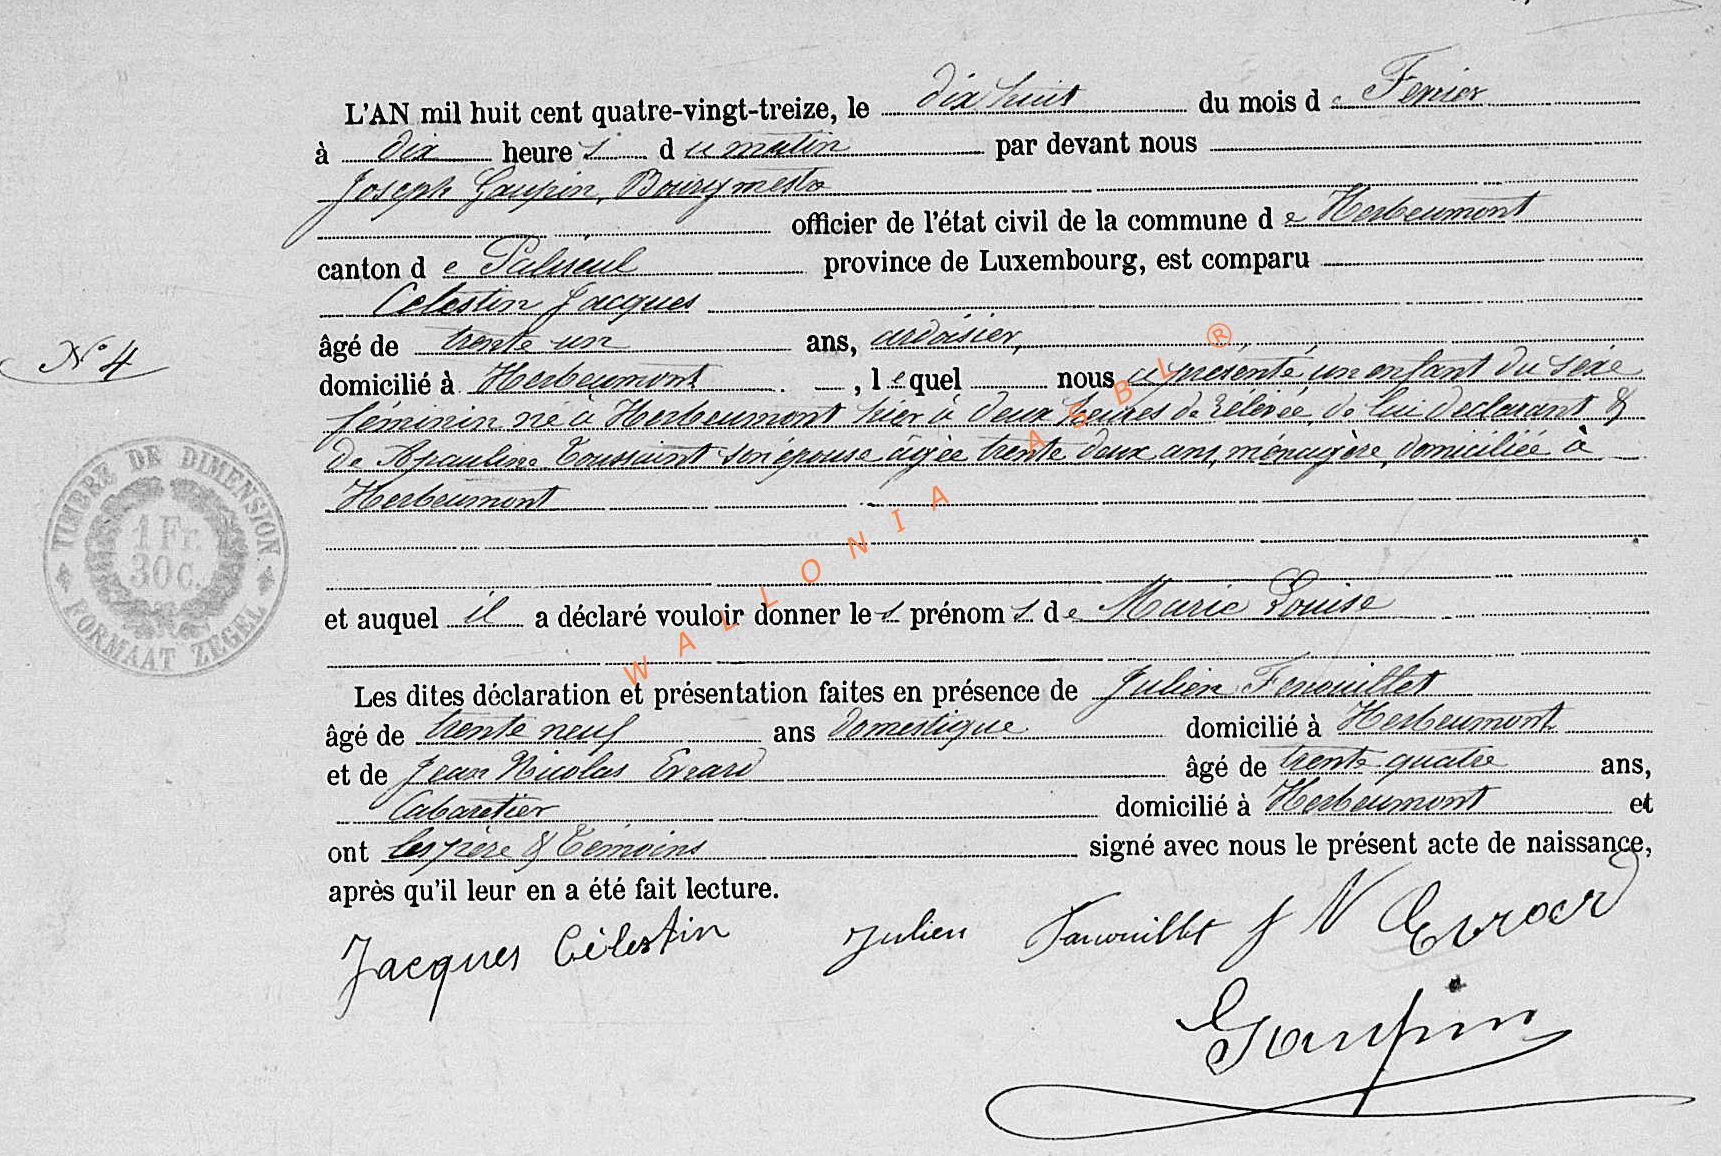 L'AN mil huit cent quatre-vingt-treize, le dix huit du mois de Fevrier
à dix heures du matin par devant nous
Joseph Goupin, Bourgmestre
officier de l'état civil de la commune de Herbeumont
canton de Paliseul province de Luxembourg, est comparu
Celestin Jacques
âgé de trente un ans, ardoisier,
N° 4
domicilié à Herbeumont, lequel nous a présenté un enfant du sexe
féminin né à Herbeumont hier à deux heures de rélevée, de lui déclarant &
de Apauline Toussaint son épouse âgée trente deux ans, ménagère, domiciliée à
Herbeumont
et auquel il a déclaré vouloir donner les prénoms de Marie Louise
Les dites déclaration et présentation faites en présence de Julien Fenouillet
âgé de trente neuf ans domestique domicilié à Herbeumont
et de Jean Nicolas Evrard âgé de trente quatre ans,
Cabaretier domicilié à Herbeumont et
ont les père & témoins signé avec nous le présent acte de naissance,
après qu'il leur en a été fait lecture.
Jacques Célestin Julien Fanouillet J N Evrard
Goupin
TIMBRE DE DIMENSION.
1 Fr.
30 C.
FORMAAT ZEGEL
WALLONIA ASBL ®